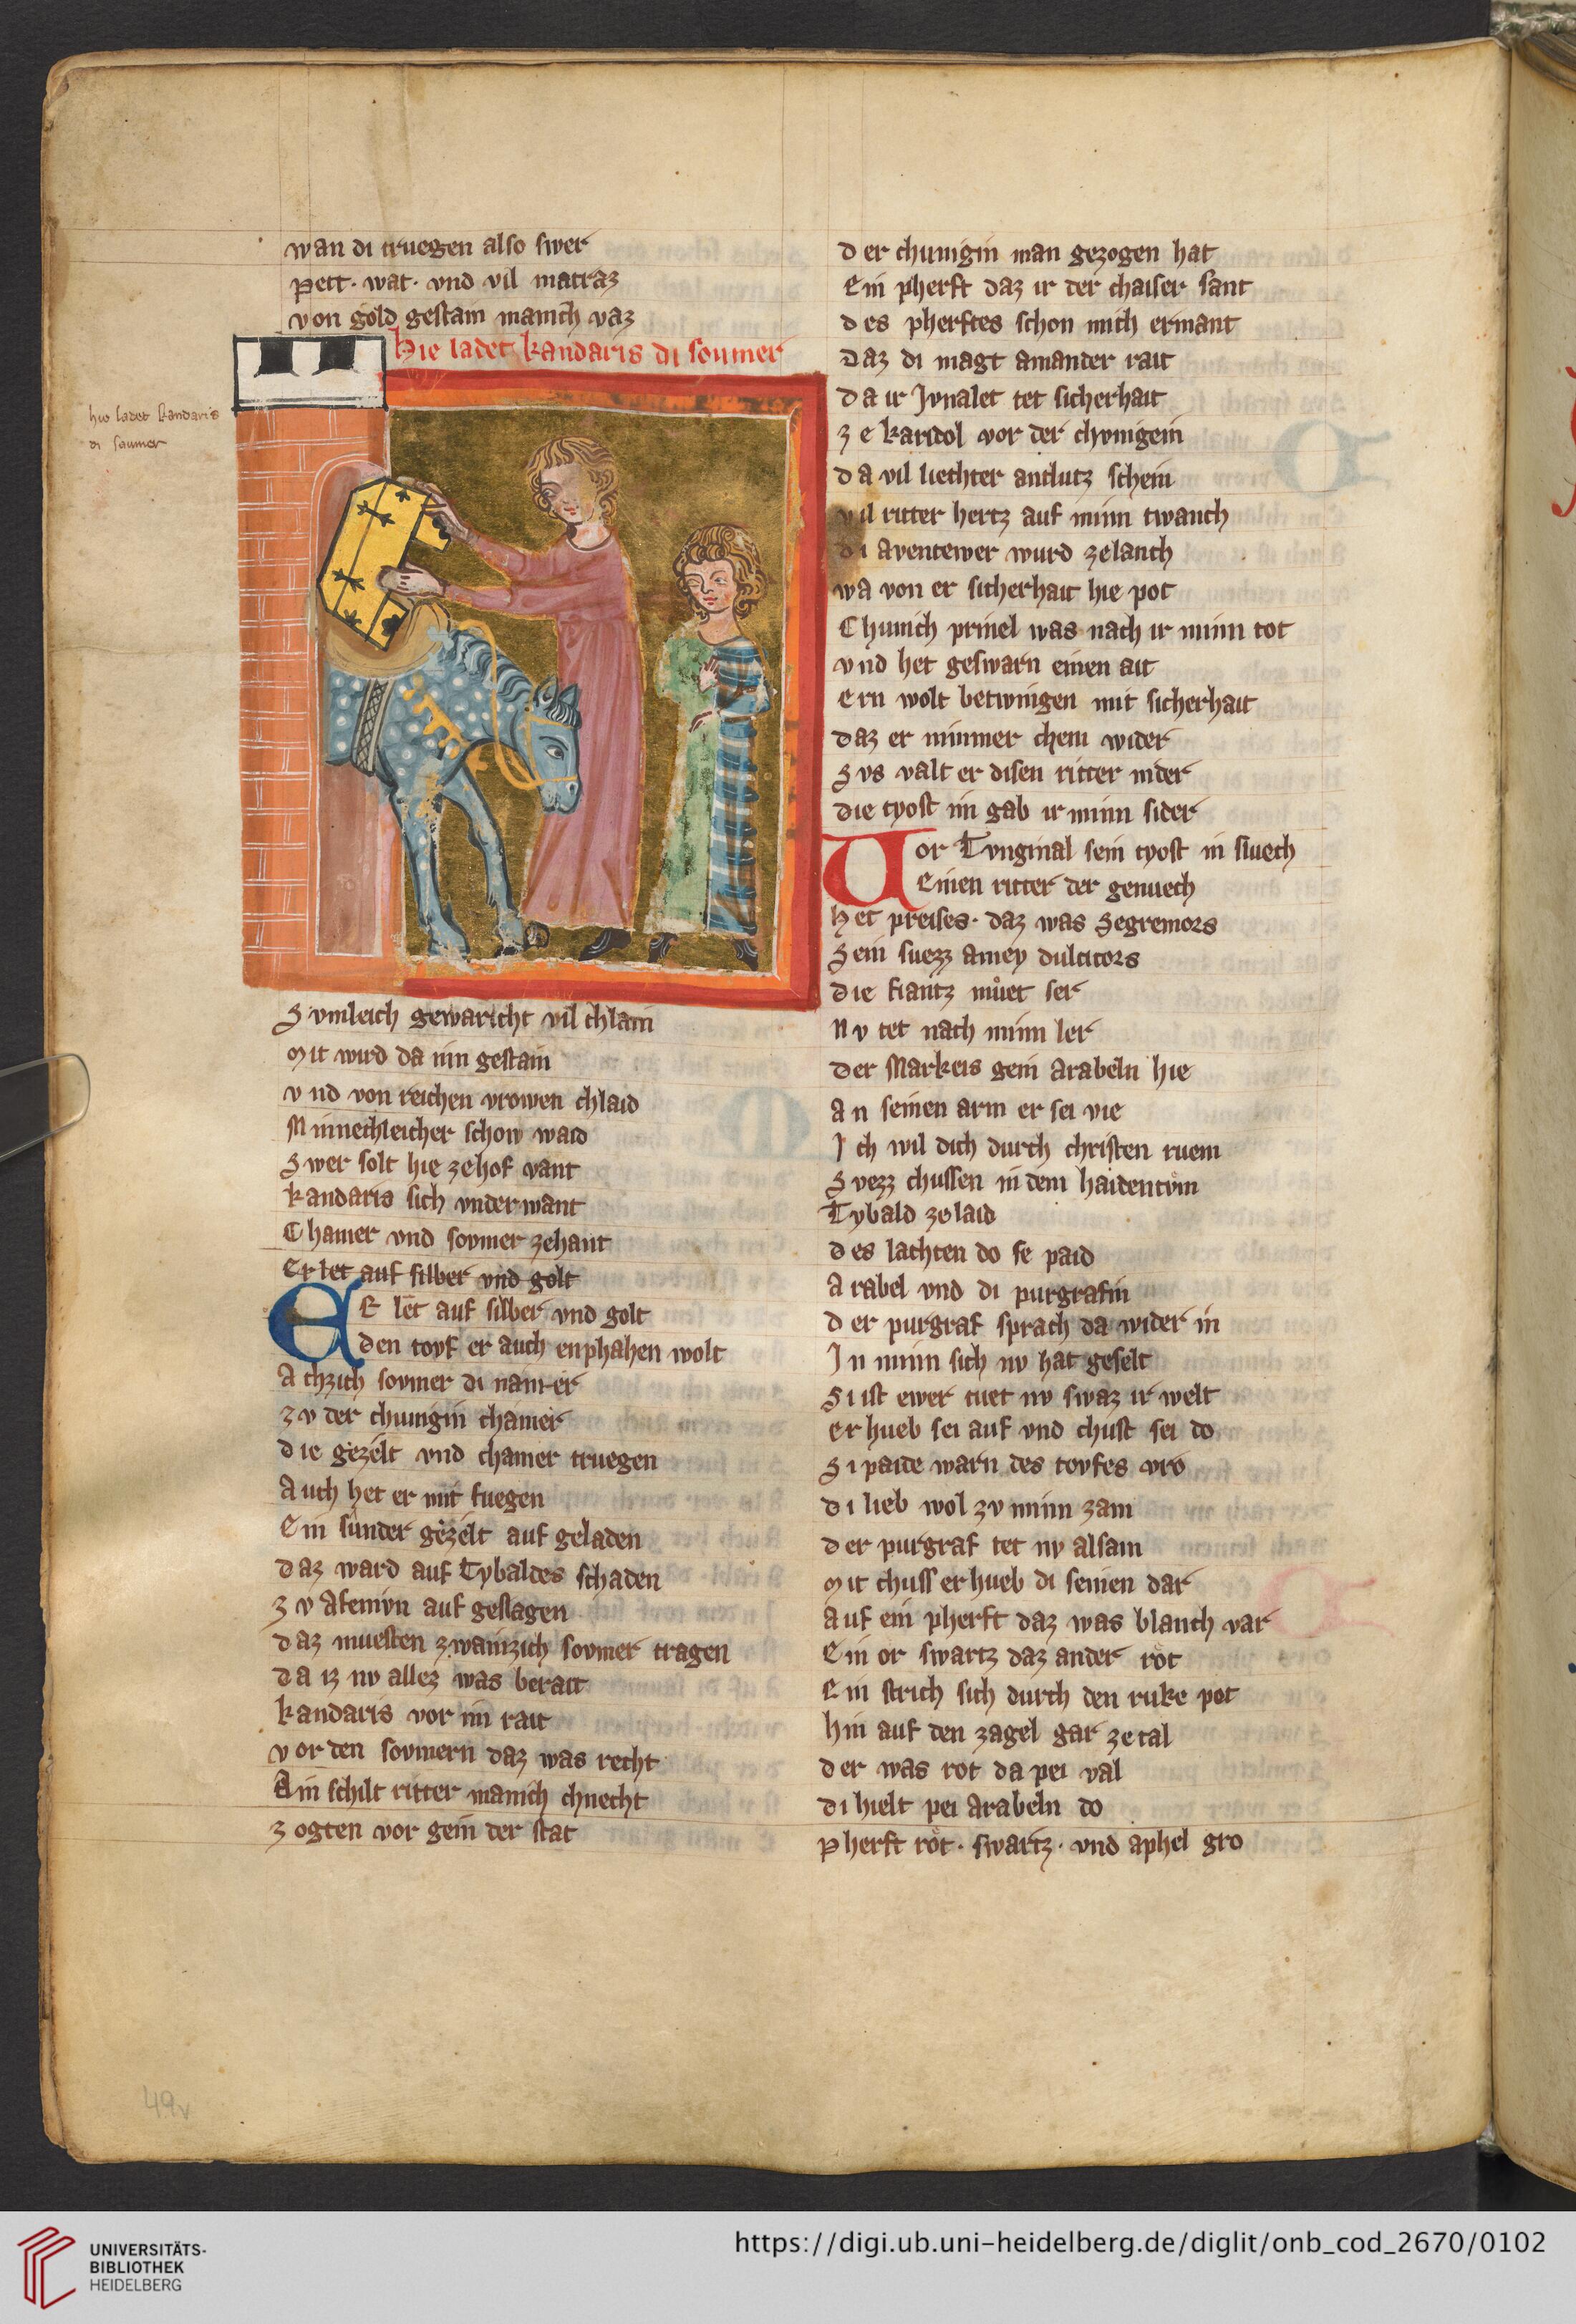 wan di truegen also swer
Pett · wat · vnd vil matraz
von gold gestain manich vaz
Hie ladet kandaris di soumer
hie ladet kandaris
di saumer
Svmleich gewaricht vil chlain
Mit wird da inn gestain
vnd von reichen vrowen chlaid
Minnechleicher schow waid
Swer solt hie zehof vant
kandaris sich vnderwant
Chamer vnd sovmer zehant
Er let auf silber vnd golt
ER let auf silber vnd golt
den tovf er auch enphahen wolt
Achzich sovmer di nam er
zv der chunigin chamer
die gezelt vnd chamer truegen
Auch het er mit fuegen
Ein sunder gezelt auf geladen
daz ward auf Tybaldes schaden
zv Afemvn auf geslagen
daz muesten zwainzich sovmer tragen
da iz nv allez was berait
kandaris vor im rait
vor den sovmern daz was recht
Ain schilt ritter manich chnecht
zogten vor gein der stat
der chunigin man gezogen hat
Ein pherft daz ir der chaiser sant
des pherftes schon mich ermant
Daz di magt amander rait
da ir Jvnalet tet sicherhait
ze karidol vor der chvnigein
da vil liechter antlutz schein
vil ritter hertz auf minn twanch
di aventewer wurd zelanch
wa von er sicherhait hie pot
Chunich prinel was nach ir minn tot
vnd het geswarn einen ait
ern wolt betwingen mit sicherhait
daz er nimmer chem wider
Svs valt er disen ritter nider
die tyost im gab ir minn sider
Vor Tvnginal sein tyost in sluech
Einen ritter der genuech
Het preises · daz was Segremors
Sein suezz amey dulcitors
die fiantz muet ser
Nv tet nach minn ler
der Markeis gein Arabeln hie
an seinen arm er sei vie
Ich wil dich durch christen ruem
Svezz chussen in dem haidentum
Tybald zelaid
des lachten do se paid
Arabel vnd di purgrafin
der purgraf sprach da wider in
In minn sich nv hat geselt
Si ist ewer tuet nv swaz ir welt
er hueb sei auf vnd chust sei do
Si paide warn des tovfes vro
di lieb wol zv minn zam
der purgraf tet nv alsam
Mit chuss er hueb di seinen dar
Auf ein pherft daz was blanch var
Ein or swartz daz ander rot
Ein strich sich durch den ruke pot
hin auf den zagel gar zetal
der was rot da pei val
di hielt pei Arabeln do
Pherft rot · swartz · vnd aphel gro
49v
UNIVERSITÄTS-
BIBLIOTHEK
HEIDELBERG
https://digi.ub.uni-heidelberg.de/diglit/onb_cod_2670/0102